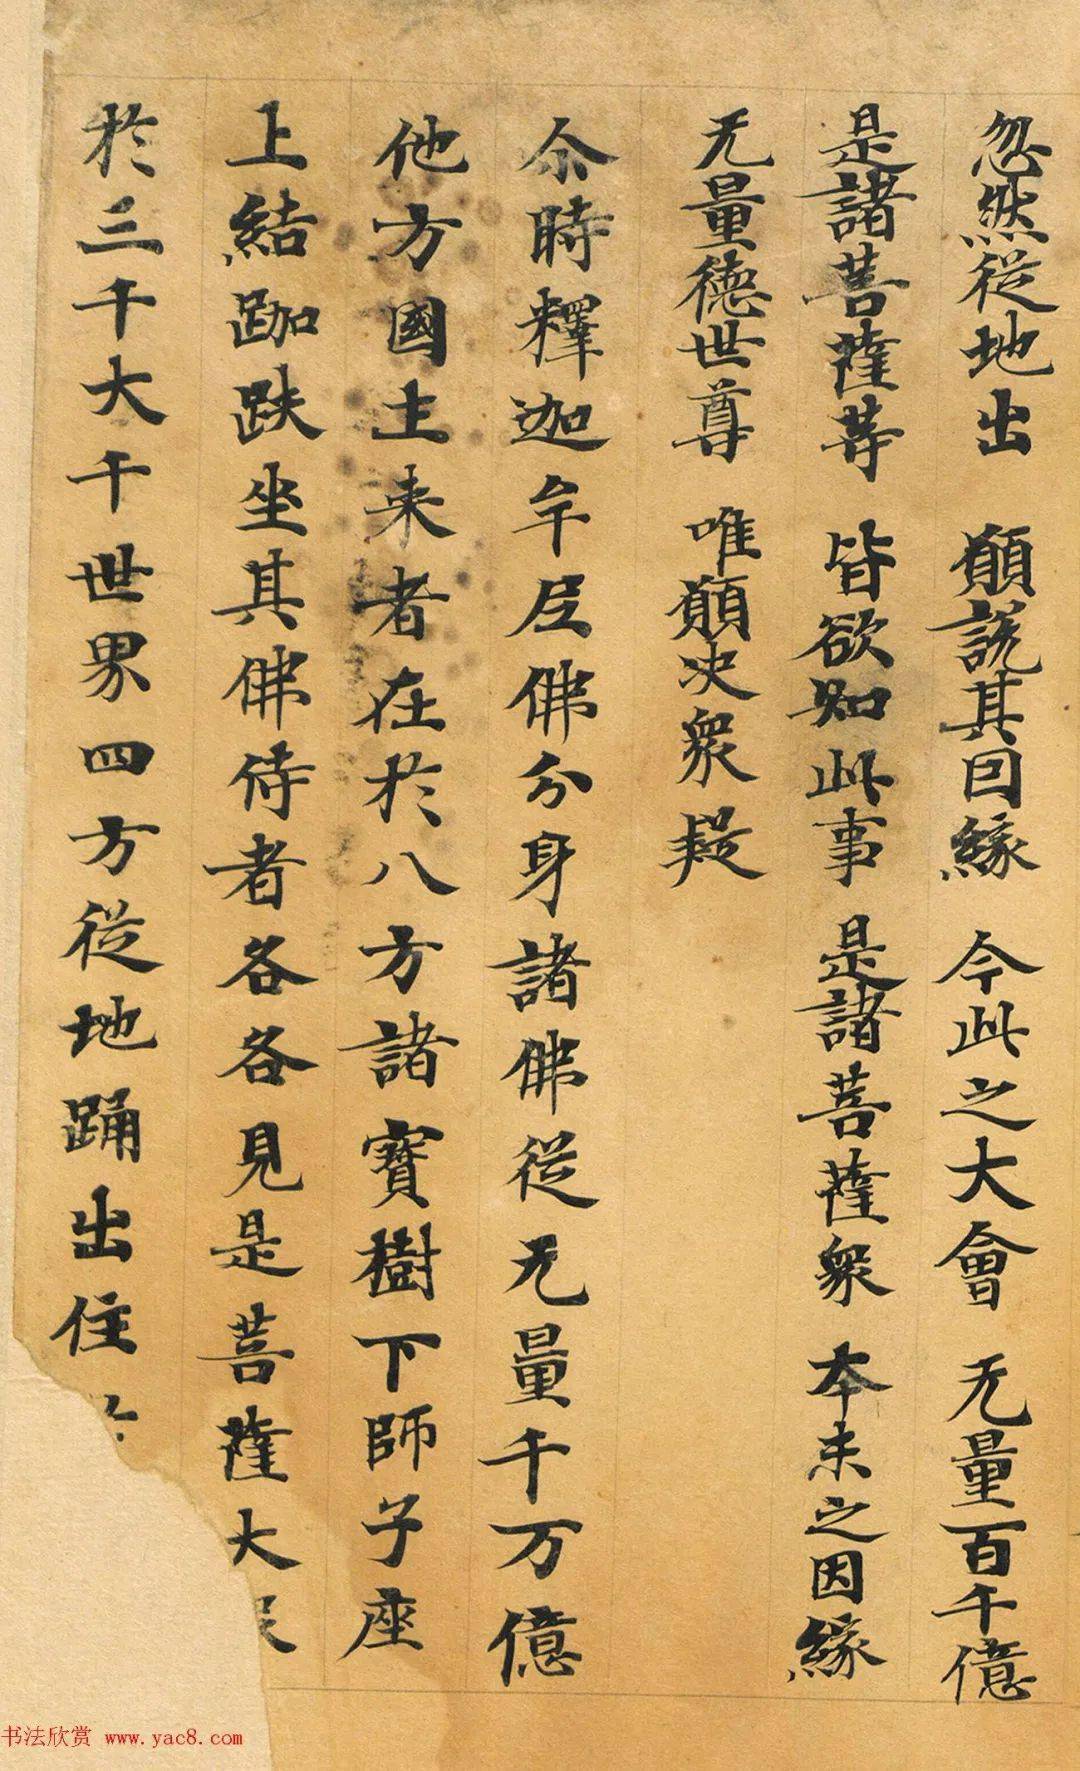 忽然從地出　願說其囙緣　今此之大會　无量百千億
是諸菩薩等　皆欲知此事　是諸菩薩衆　本末之因緣
无量德世尊　唯願决衆疑
尒時釋迦牟尼佛分身諸佛從无量千万億
他方國土来者在於八方諸寶樹下師子座
上結跏趺坐其佛侍者各各見是菩薩大
於三千大千世界四方從地踊出住
书法欣赏 www.yac8.com